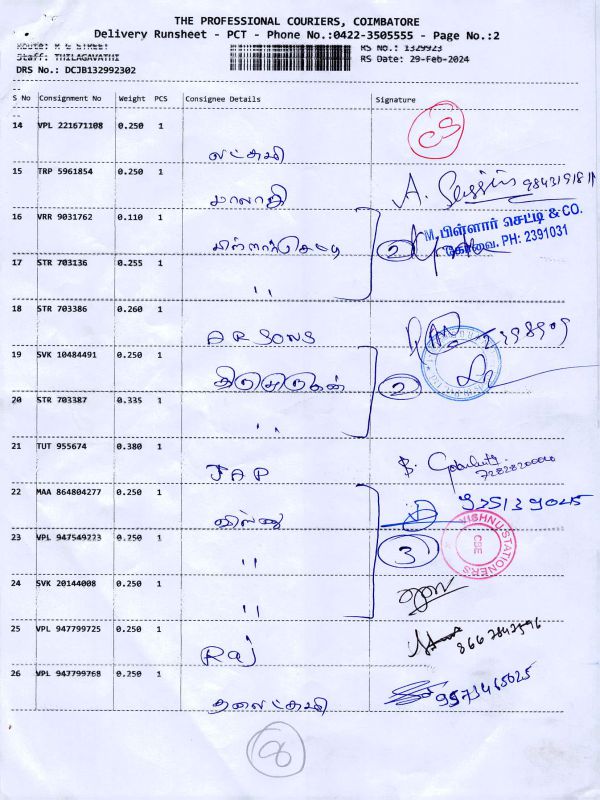 THE PROFESSIONAL COURIERS, COIMBATORE
Delivery Runsheet - PCT - Phone No.:0422-3505555 - Page No.:2
Route: M G STREET RS No.: 1329923
Staff: THILAGAVATHI RS Date: 29-Feb-2024
DRS No.: DCJB132992302
S No Consignment No Weight PCS Consignee Details Signature
14 VPL 221671108 0.250 1
லட்சுமி
15 TRP 5961854 0.250 1
மாலதி A. 9843191811
16 VRR 9031762 0.110 1 M. பிள்ளார் செட்டி & CO.
2 கோவை. PH: 2391031
17 STR 703136 0.255 1
"
18 STR 703386 0.260 1
AR SONS
19 SVK 10484491 0.250 1
திருமுருகன் 2
20 STR 703387 0.335 1
"
21 TUT 955674 0.380 1
JAP B.
22 MAA 864804277 0.250 1
விஸ்ணு 975139025
23 VPL 947549223 0.250 1 VISHNU STATIONERS
" 3 CBE
24 SVK 20144008 0.250 1
"
25 VPL 947799725 0.250 1
Raj 8667847596
26 VPL 947799768 0.250 1
தனலட்சுமி 9573465025
8